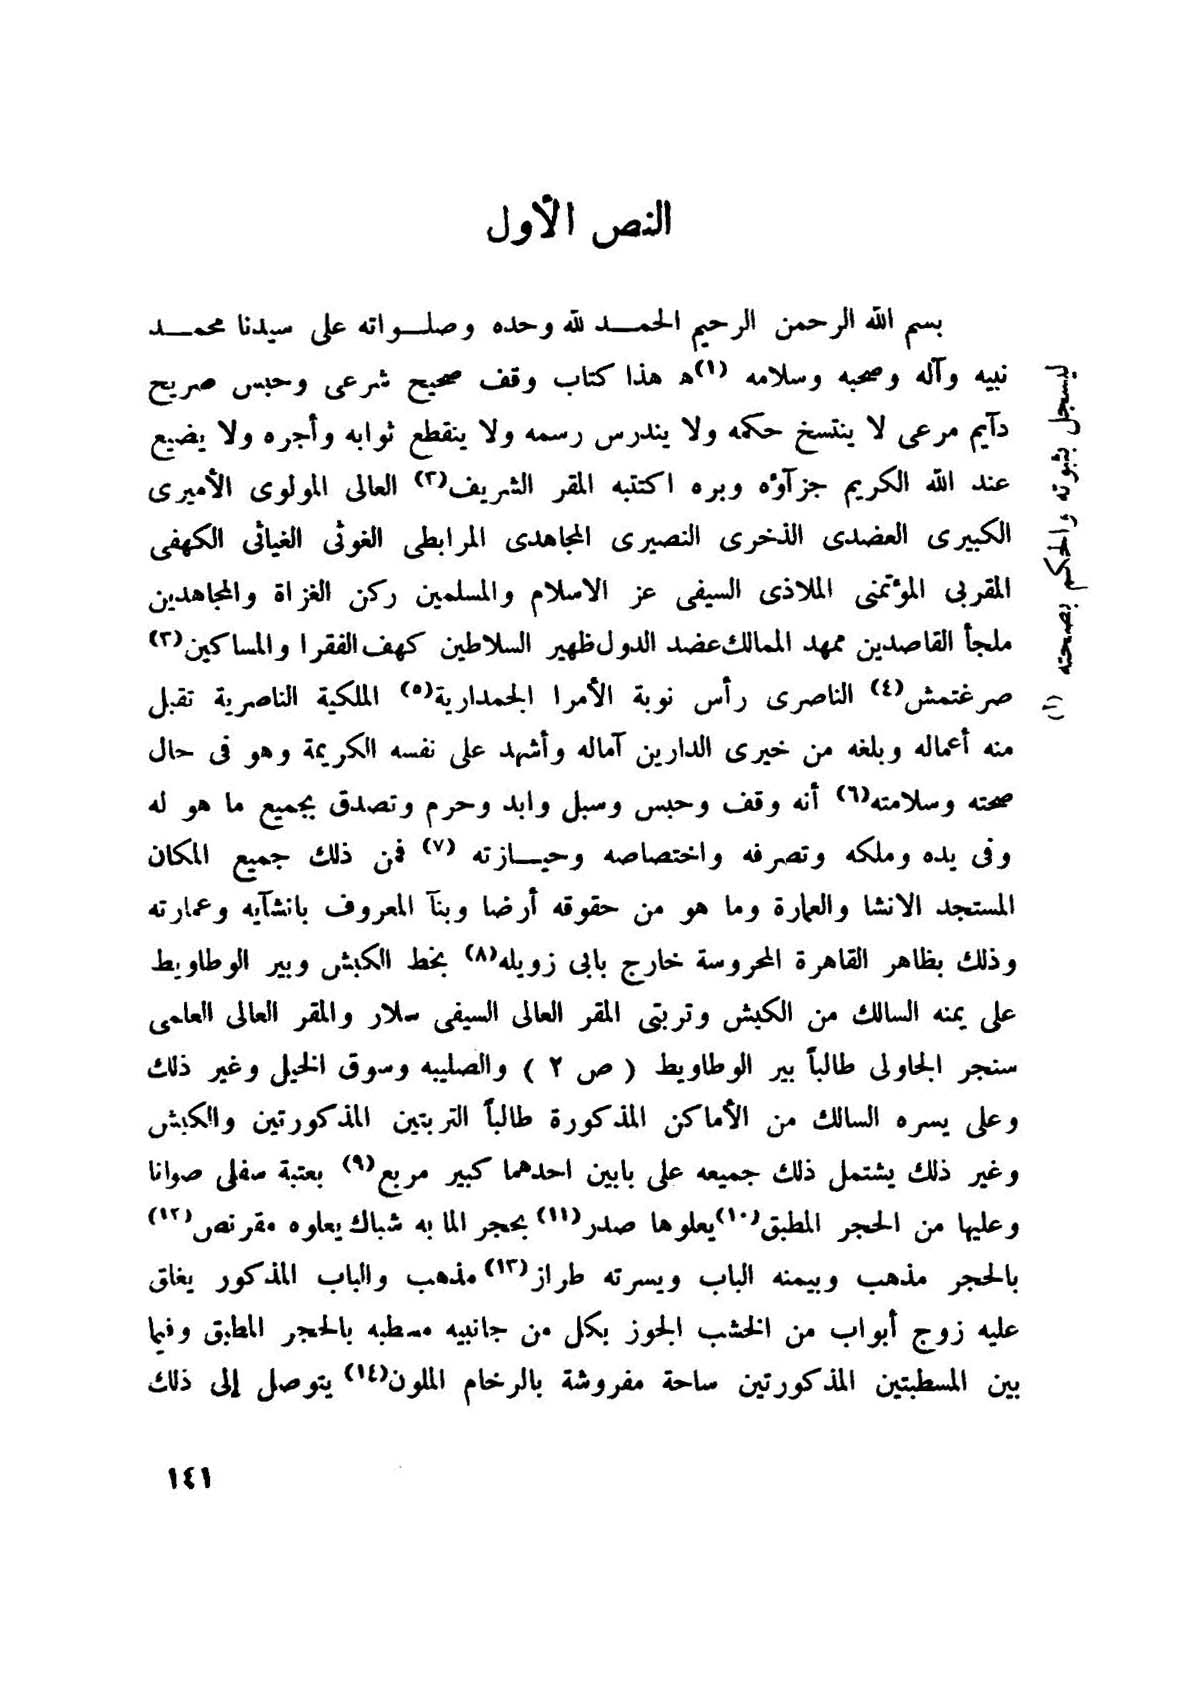 النص الأول
بسم الله الرحمن الرحيم الحمد لله وحده وصلواته على سيدنا محمد
نبيه وآله وصحبه وسلامه (١)ه هذا كتاب وقف صحيح شرعى وحبس صريح
دآيم مرعى لا ينتسخ حكمه ولا يندرس رسمه ولا ينقطع ثوابه وأجره ولا يضيع
عند الله الكريم جزآؤه وبره اكتتبه المقر الشريف(٢) العالى المولوى الأميرى
الكبيرى العضدى الذخرى النصيرى المجاهدى المرابطى الغوثى الغياثى الكهفى
المقربى المؤتمنى الملاذى السيفى عز الاسلام والمسلمين ركن الغزاة والمجاهدين
ملجأ القاصدين ممهد الممالك عضد الدول ظهير السلاطين كهف الفقرا والمساكين(٣)
صرغتمش(٤) الناصرى رأس نوبة الأمرا الجمدارية(٥) الملكية الناصرية تقبل
منه أعماله وبلغه من خيرى الدارين آماله وأشهد على نفسه الكريمة وهو فى حال
صحته وسلامته(٦) أنه وقف وحبس وسبل وابد وحرم وتصدق بجميع ما هو له
وفى يده وملكه وتصرفه واختصاصه وحيازته (٧) فمن ذلك جميع المكان
المستجد الانشا والعمارة وما هو من حقوقه أرضا وبنآ المعروف بانشآيه وعمارته
وذلك بظاهر القاهرة المحروسة خارج بابى زويله(٨) بخط الكبش وبير الوطاويط
على يمنه السالك من الكبش وتربتى المقر العالى السيفى سلار والمقر العالى العلمى
سنجر الجاولى طالباً بير الوطاويط ( ص ٢ ) والصليبه وسوق الخيل وغير ذلك
وعلى يسره السالك من الأماكن المذكورة طالباً التربتين المذكورتين والكبش
وغير ذلك يشتمل ذلك جميعه على بابين احدهما كبير مربع(٩) بعتبة سفلى صوانا
وعليها من الحجر المطبق(١٠) يعلوها صدر(١١) بحجر الما به شباك يعلوه مقرنص(١٢)
بالحجر مذهب وبيمنه الباب ويسرته طراز(١٣) مذهب والباب المذكور يغلق
عليه زوج أبواب من الخشب الجوز بكل من جانبيه مسطبه بالحجر المطبق وفيما
بين المسطبتين المذكورتين ساحة مفروشة بالرخام الملون(١٤) يتوصل إلى ذلك
ليسجل بثبوته والحكم بصحته (أ)
١٤١